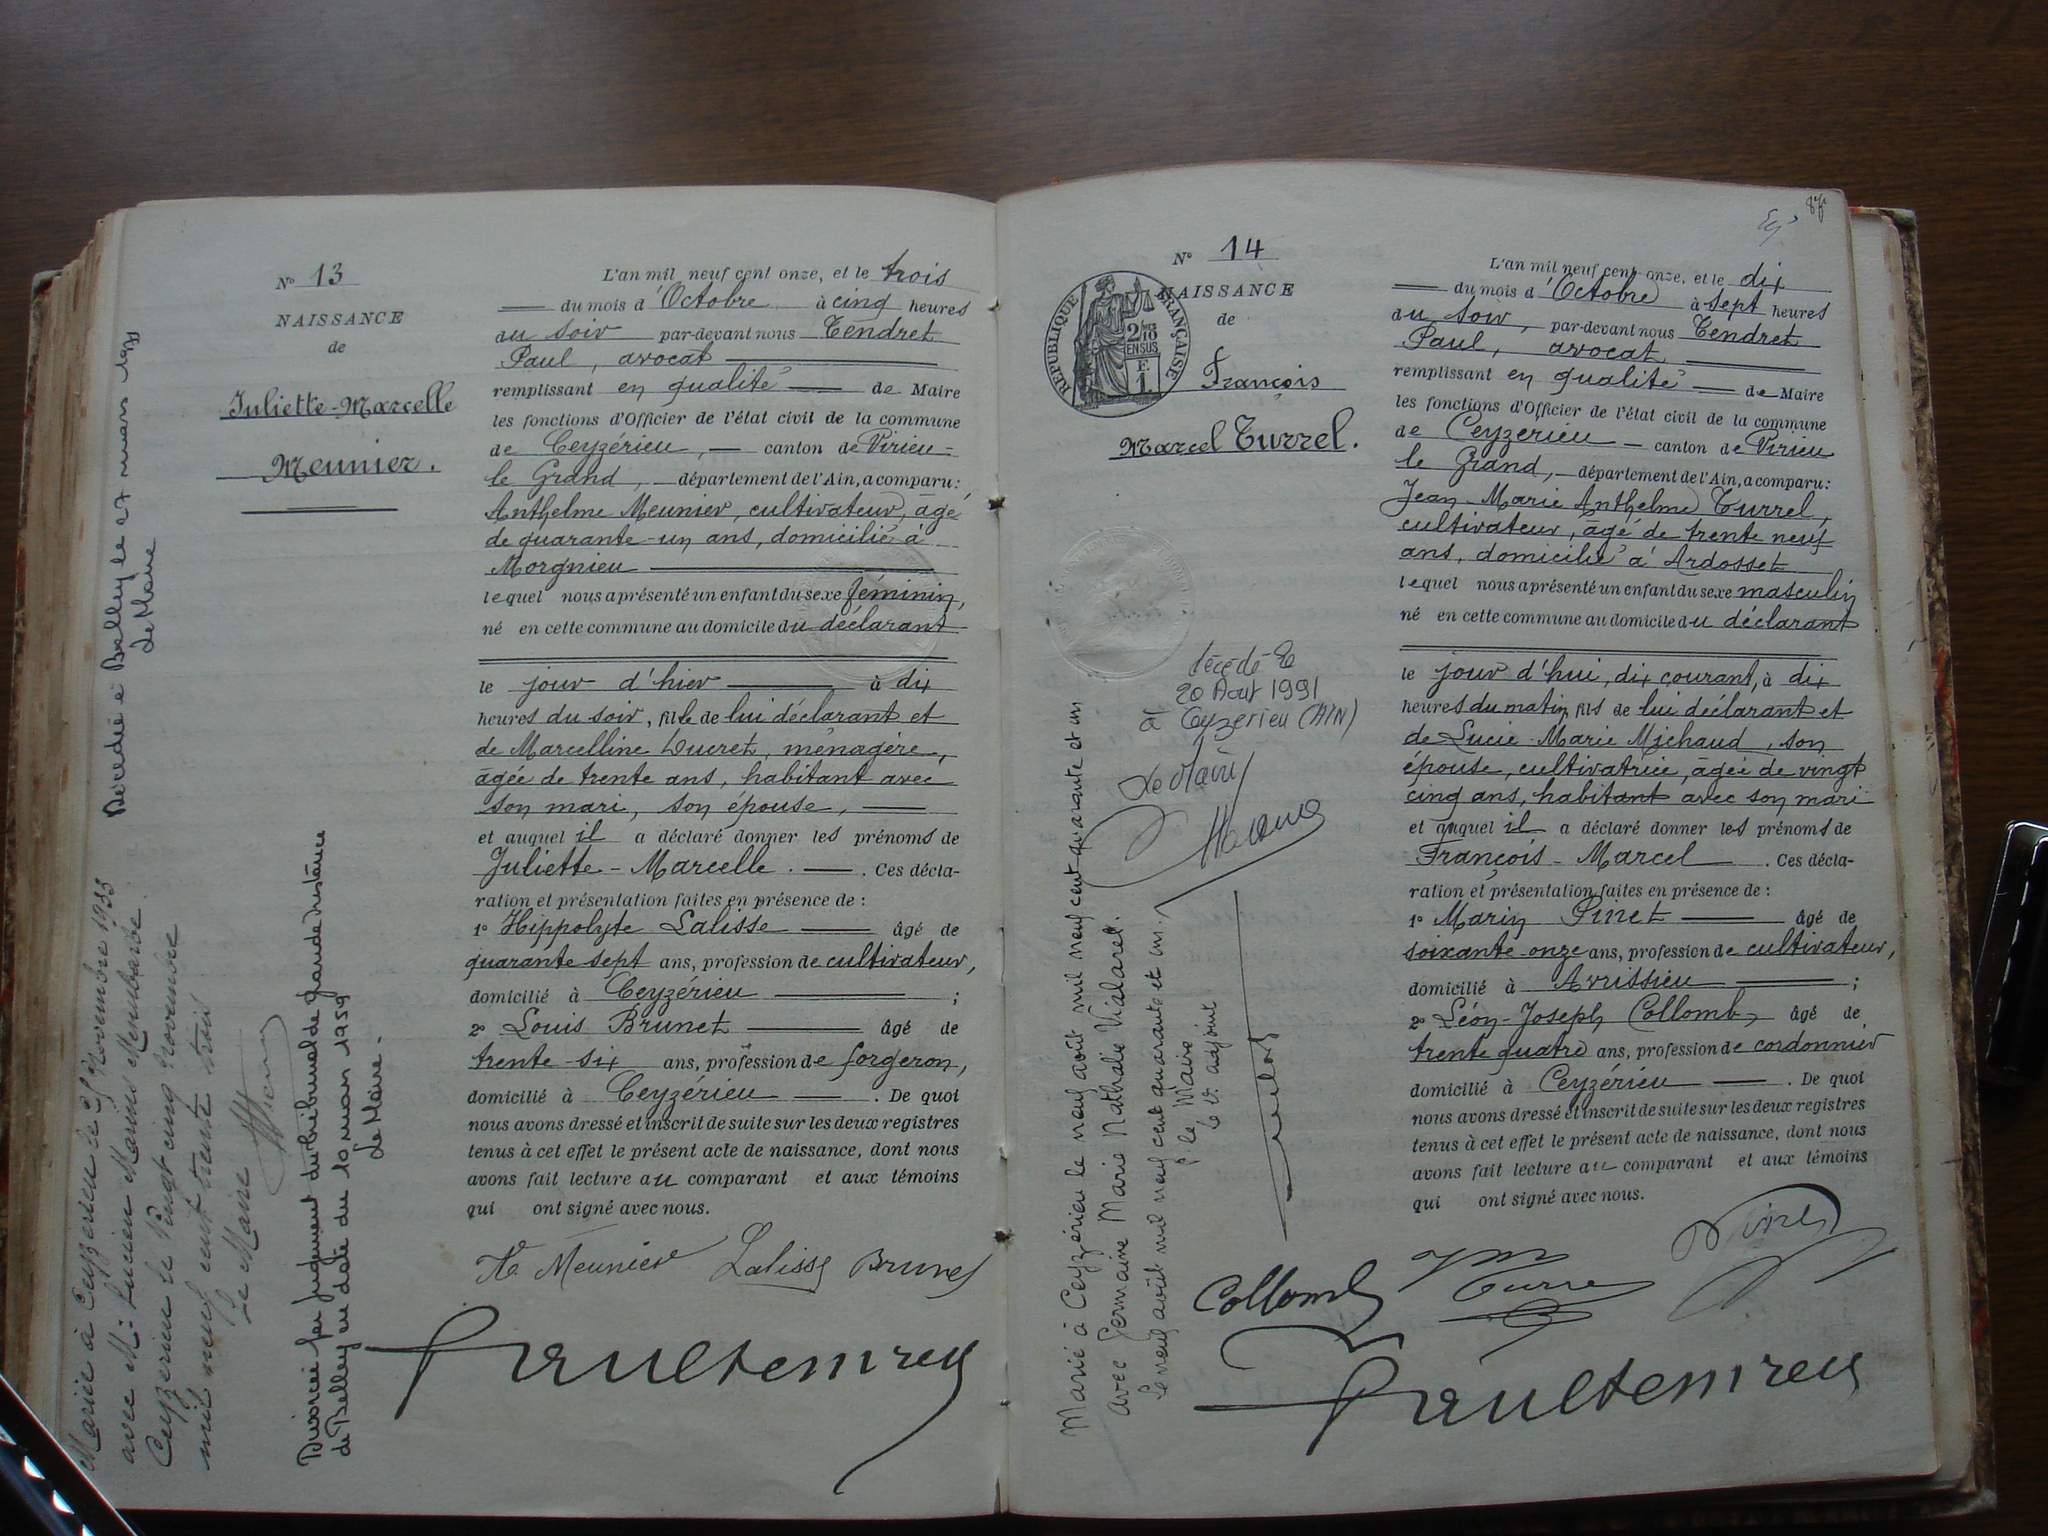 N° 13
NAISSANCE
de
Juliette-Marcelle
Meunier.
L'an mil neuf cent onze, et le trois
du mois d'Octobre à cinq heures
du soir par-devant nous Tendret
Paul, avocat
remplissant en qualité de Maire
les fonctions d'Officier de l'état civil de la commune
de Ceyzérieu, canton de Virieu-
le Grand, département de l'Ain, a comparu:
Anthelme Meunier, cultivateur, âgé
de quarante-un ans, domicilié à
Morgnieu
lequel nous a présenté un enfant du sexe féminin,
né en cette commune au domicile du déclarant
le jour d'hier à dix
heures du soir, fille de lui déclarant et
de Marcelline Ducret, ménagère,
âgée de trente ans, habitant avec
son mari, son épouse,
et auquel il a déclaré donner les prénoms de
Juliette-Marcelle. Ces décla-
ration et présentation faites en présence de :
1° Hippolyte Lalisse âgé de
quarante sept ans, profession de cultivateur,
domicilié à Ceyzérieu ;
2° Louis Brunet âgé de
trente-six ans, profession de forgeron,
domicilié à Ceyzérieu. De quoi
nous avons dressé et inscrit de suite sur les deux registres
tenus à cet effet le présent acte de naissance, dont nous
avons fait lecture au comparant et aux témoins
qui ont signé avec nous.
Meunier Lalisse Brunet
Mariée à Ceyzérieu le 25 Novembre 1933
avec M: Lucien Marius
Ceyzerieu le Vingt cinq Novembre
mil neuf cent trente trois
Le Maire
Divorcée par jugement du tribunal de grande instance
de Belley en date du 10 mars 1959
Le Maire.
Décédée à Belley le 27 mars
Le Maire
N° 14
RÉPUBLIQUE FRANÇAISE
2/10
EN SUS
F.
1
NAISSANCE
de
François
Marcel Turrel.
L'an mil neuf cent onze, et le dix
du mois d'Octobre à sept heures
du soir, par-devant nous Tendret
Paul, avocat,
remplissant en qualité de Maire
les fonctions d'Officier de l'état civil de la commune
de Ceyzérieu canton de Virieu
le Grand, département de l'Ain, a comparu:
Jean-Marie Anthelme Turrel,
cultivateur, âgé de trente neuf
ans, domicilié à Ardosset
lequel nous a présenté un enfant du sexe masculin
né en cette commune au domicile du déclarant
le jour d'hui, dix courant, à dix
heures du matin, fils de lui déclarant et
de Lucie-Marie Michaud, son
épouse, cultivatrice, âgée de vingt
cinq ans, habitant avec son mari
et auquel il a déclaré donner les prénoms de
François-Marcel. Ces décla-
ration et présentation faites en présence de :
1° Marin Pinet âgé de
soixante-onze ans, profession de cultivateur,
domicilié à Avrissieu ;
2° Léon-Joseph Collomb, âgé de
trente quatre ans, profession de cordonnier
domicilié à Ceyzérieu. De quoi
nous avons dressé et inscrit de suite sur les deux registres
tenus à cet effet le présent acte de naissance, dont nous
avons fait lecture au comparant et aux témoins
qui ont signé avec nous.
Collomb Turrel Pinet
décédé le
20 Aout 1991
à Ceyzerieu (AIN)
Le Maire
Marié à Ceyzérieu le neuf août mil neuf cent quarante et un
avec Germaine Marie Nathalie Vialaret.
Le neuf août mil neuf cent quarante et un.
p. le Maire
adjoint